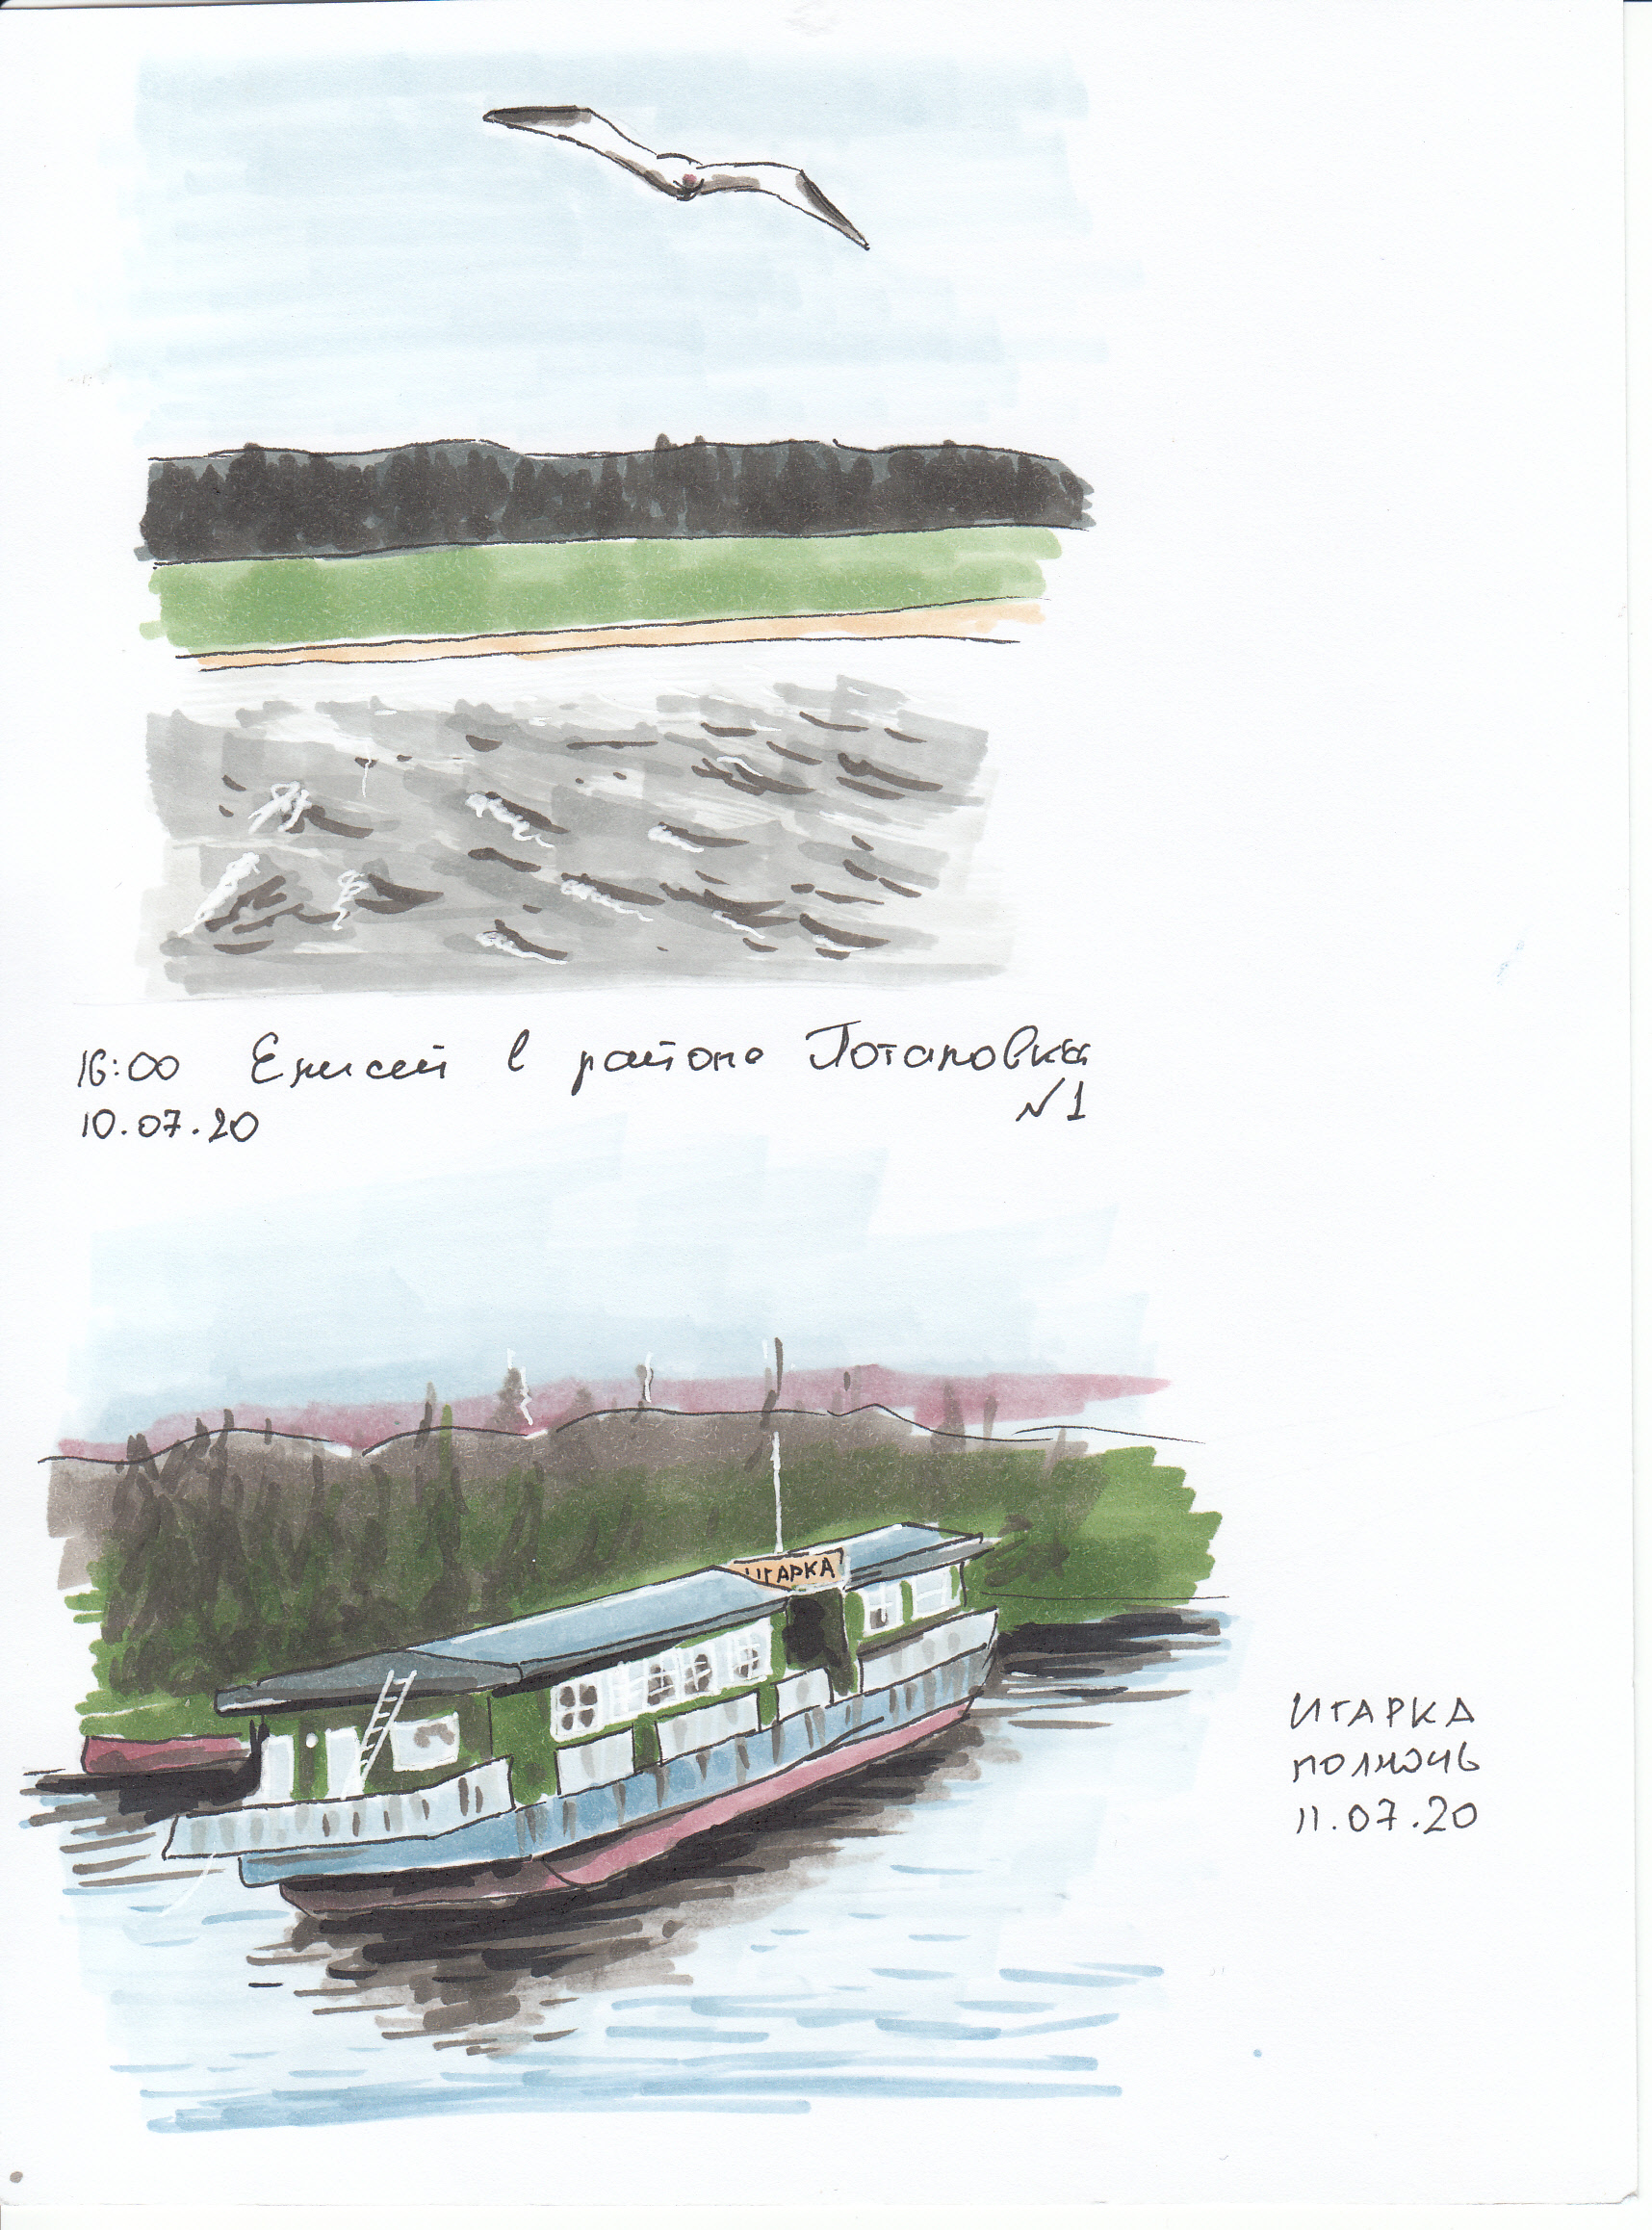 16:00 Енисей в районе Потаповки
№1
10.07.20
ИГАРКА
ИГАРКА
полночь
11.07.20